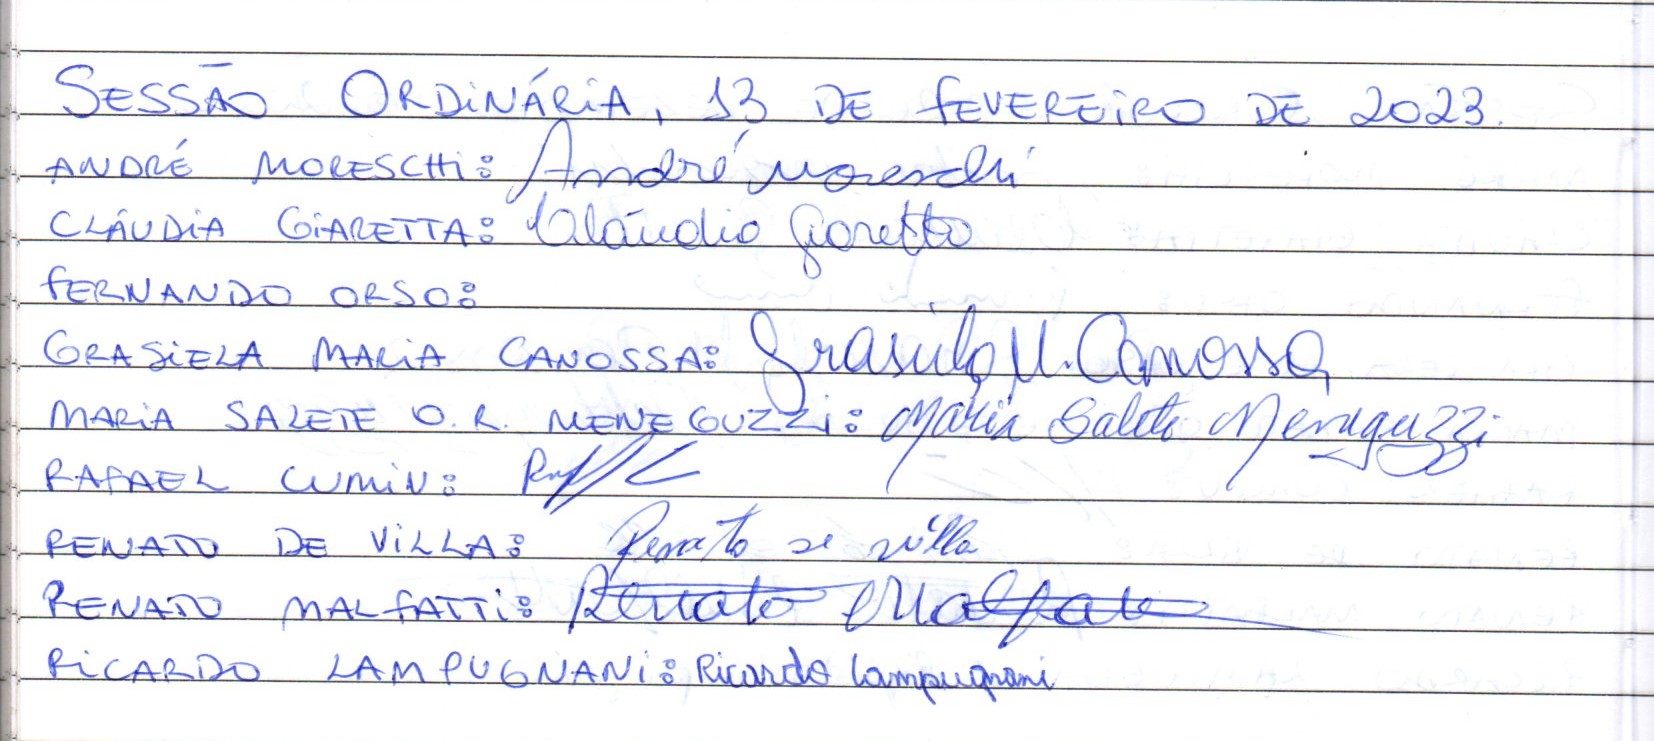 SESSÃO ORDINÁRIA, 13 DE FEVEREIRO DE 2023.
ANDRÉ MORESCHI: André Moreschi
CLÁUDIA GIARETTA: Cláudia Giaretta
FERNANDO ORSO:
GRASIELA MARIA CANOSSA: Grasiela M. Canossa
MARIA SALETE O. R. MENEGUZZI: Maria Salete Meneguzzi
RAFAEL CUMIN:
RENATO DE VILLA: Renato de villa
RENATO MALFATTI: Renato Malfatti
RICARDO LAMPUGNANI: Ricardo Lampugnani